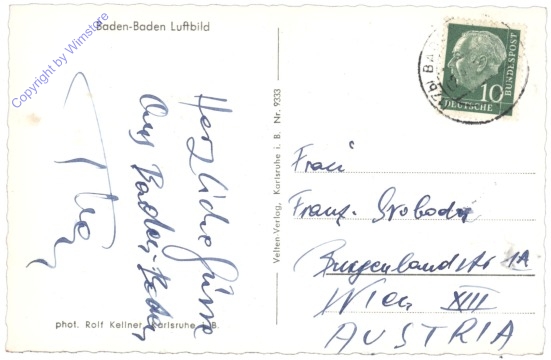 Baden-Baden Luftbild
Copyright by Wimstore
Herzliche Grüsse
Aus Baden-Baden
phot. Rolf Kellner, Karlsruhe i. B.
Velten-Verlag, Karlsruhe i. B. Nr. 9333
10
DEUTSCHE BUNDESPOST
Frau
Franz. Svoboda
Burgenlandstr 1A
Wien XIII
AUSTRIA